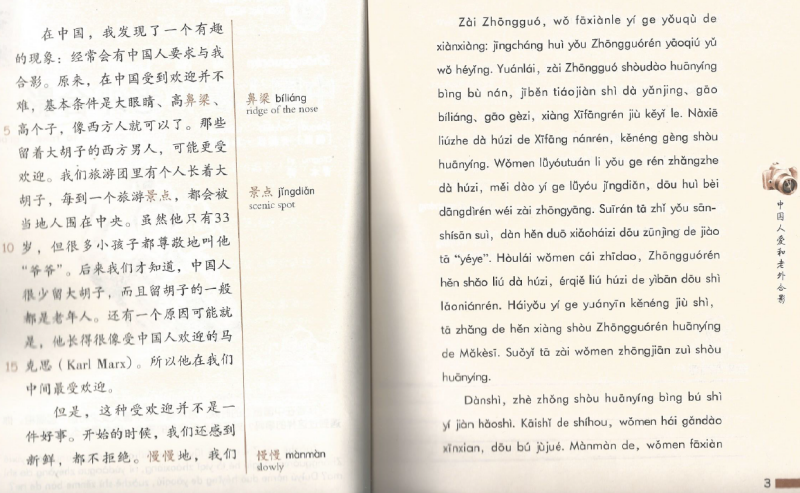 在中国，我发现了一个有趣
的现象：经常会有中国人要求与我
合影。原来，在中国受到欢迎并不
难，基本条件是大眼睛、高鼻梁、
5 高个子，像西方人就可以了。那些
留着大胡子的西方男人，可能更受
欢迎。我们旅游团里有个人长着大
胡子，每到一个旅游景点，都会被
当地人围在中央。虽然他只有33
10 岁，但很多小孩子都尊敬地叫他
“爷爷”。后来我们才知道，中国人
很少留大胡子，而且留胡子的一般
都是老年人。还有一个原因可能就
是，他长得很像受中国人欢迎的马
15 克思（Karl Marx）。所以他在我们
中间最受欢迎。
但是，这种受欢迎并不是一
件好事。开始的时候，我们还感到
新鲜，都不拒绝。慢慢地，我们
鼻梁 bíliáng
ridge of the nose
景点 jǐngdiǎn
scenic spot
慢慢 mànmàn
slowly
Zài Zhōngguó, wǒ fāxiànle yí ge yǒuqù de
xiànxiàng: jīngcháng huì yǒu Zhōngguórén yāoqiú yǔ
wǒ héyǐng. Yuánlái, zài Zhōngguó shòudào huānyíng
bìng bù nán, jīběn tiáojiàn shì dà yǎnjing, gāo
bíliáng, gāo gèzi, xiàng Xīfāngrén jiù kěyǐ le. Nàxiē
liúzhe dà húzi de Xīfāng nánrén, kěnéng gèng shòu
huānyíng. Wǒmen lǚyóutuán li yǒu ge rén zhǎngzhe
dà húzi, měi dào yí ge lǚyóu jǐngdiǎn, dōu huì bèi
dāngdìrén wéi zài zhōngyāng. Suīrán tā zhǐ yǒu sān-
shísān suì, dàn hěn duō xiǎoháizi dōu zūnjìng de jiào
tā “yéye”. Hòulái wǒmen cái zhīdao, Zhōngguórén
hěn shǎo liú dà húzi, érqiě liú húzi de yìbān dōu shì
lǎoniánrén. Háiyǒu yí ge yuányīn kěnéng jiù shì,
tā zhǎng de hěn xiàng shòu Zhōngguórén huānyíng
de Mǎkèsī. Suǒyǐ tā zài wǒmen zhōngjiān zuì shòu
huānyíng.
Dànshì, zhè zhǒng shòu huānyíng bìng bú shì
yí jiàn hǎoshì. Kāishǐ de shíhou, wǒmen hái gǎndào
xīnxian, dōu bú jùjué. Mànmàn de, wǒmen fāxiàn
中国人爱和老外合影
3